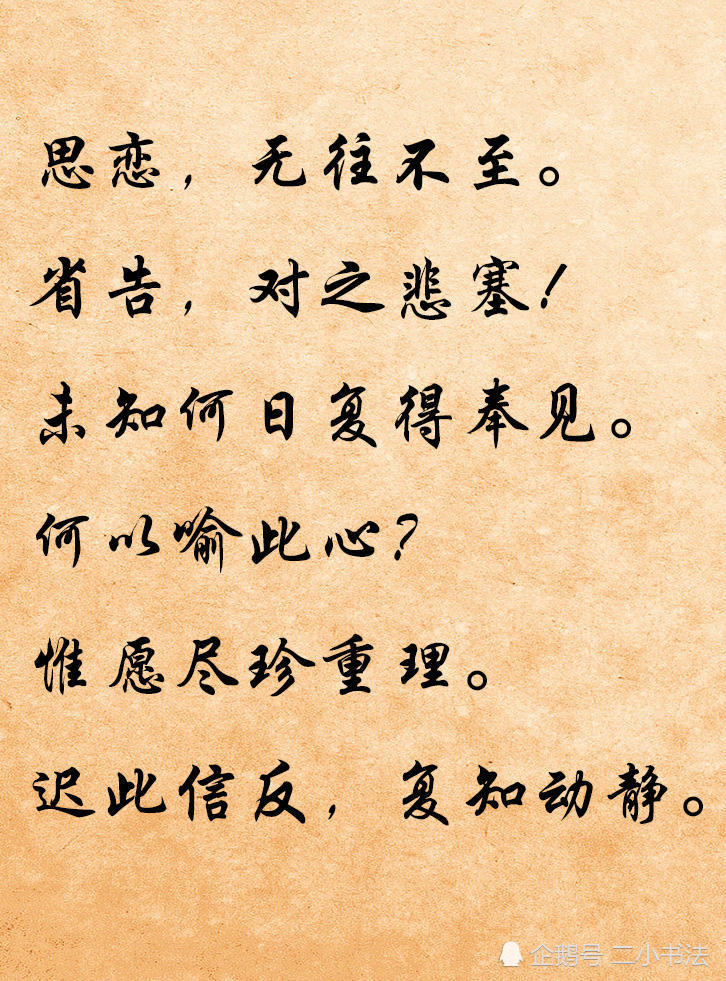 思恋，无往不至。
省告，对之悲塞！
未知何日复得奉见。
何以喻此心？
惟愿尽珍重理。
迟此信反，复知动静。
企鹅号 二小书法